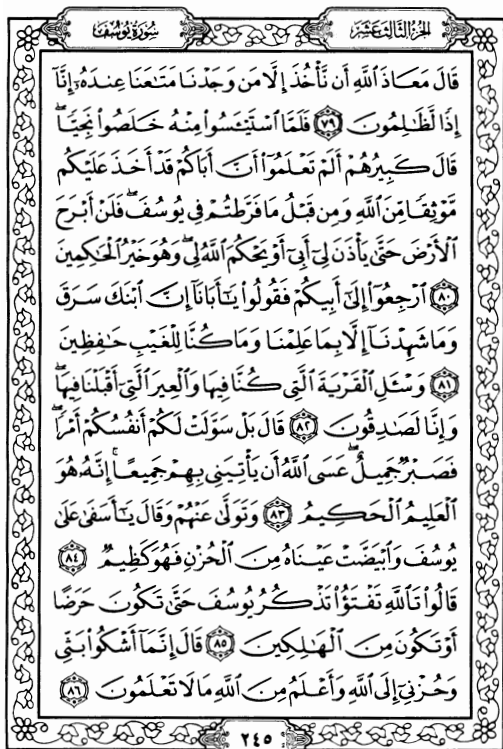 سُورَةُ يُوسُفَ الجُزءُ الثَّالِثَ عَشَرَ
قَالَ مَعَاذَ ٱللَّهِ أَن نَّأْخُذَ إِلَّا مَن وَجَدْنَا مَتَٰعَنَا عِندَهُۥٓ إِنَّآ
إِذًا لَّظَٰلِمُونَ ٧٩ فَلَمَّا ٱسْتَيْـَٔسُوا۟ مِنْهُ خَلَصُوا۟ نَجِيًّا ۖ
قَالَ كَبِيرُهُمْ أَلَمْ تَعْلَمُوٓا۟ أَنَّ أَبَاكُمْ قَدْ أَخَذَ عَلَيْكُم
مَّوْثِقًا مِّنَ ٱللَّهِ وَمِن قَبْلُ مَا فَرَّطتُمْ فِى يُوسُفَ ۖ فَلَنْ أَبْرَحَ
ٱلْأَرْضَ حَتَّىٰ يَأْذَنَ لِىٓ أَبِىٓ أَوْ يَحْكُمَ ٱللَّهُ لِى ۖ وَهُوَ خَيْرُ ٱلْحَٰكِمِينَ
٨٠ ٱرْجِعُوٓا۟ إِلَىٰٓ أَبِيكُمْ فَقُولُوا۟ يَٰٓأَبَانَآ إِنَّ ٱبْنَكَ سَرَقَ
وَمَا شَهِدْنَآ إِلَّا بِمَا عَلِمْنَا وَمَا كُنَّا لِلْغَيْبِ حَٰفِظِينَ
٨١ وَسْـَٔلِ ٱلْقَرْيَةَ ٱلَّتِى كُنَّا فِيهَا وَٱلْعِيرَ ٱلَّتِىٓ أَقْبَلْنَا فِيهَا ۖ
وَإِنَّا لَصَٰدِقُونَ ٨٢ قَالَ بَلْ سَوَّلَتْ لَكُمْ أَنفُسُكُمْ أَمْرًا ۖ
فَصَبْرٌ جَمِيلٌ ۖ عَسَى ٱللَّهُ أَن يَأْتِيَنِى بِهِمْ جَمِيعًا ۚ إِنَّهُۥ هُوَ
ٱلْعَلِيمُ ٱلْحَكِيمُ ٨٣ وَتَوَلَّىٰ عَنْهُمْ وَقَالَ يَٰٓأَسَفَىٰ عَلَىٰ
يُوسُفَ وَٱبْيَضَّتْ عَيْنَاهُ مِنَ ٱلْحُزْنِ فَهُوَ كَظِيمٌ ٨٤
قَالُوا۟ تَٱللَّهِ تَفْتَؤُا۟ تَذْكُرُ يُوسُفَ حَتَّىٰ تَكُونَ حَرَضًا
أَوْ تَكُونَ مِنَ ٱلْهَٰلِكِينَ ٨٥ قَالَ إِنَّمَآ أَشْكُوا۟ بَثِّى
وَحُزْنِىٓ إِلَى ٱللَّهِ وَأَعْلَمُ مِنَ ٱللَّهِ مَا لَا تَعْلَمُونَ ٨٦
٢٤٥